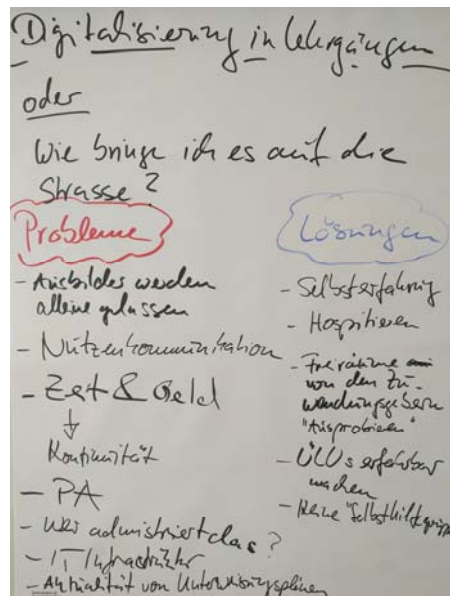 Digitalisierung in Lehrgängen
oder
Wie bringe ich es auf die
Strasse?
Probleme
- Ausbilder werden
alleine gelassen
- Nutzenkommunikation
- Zeit & Geld
↓
Kontinuität
- PA
- Wer administriert das?
- IT Infrastruktur
- Aktualität von Unterweisungsplänen
Lösungen
- Selbsterfahrung
- Hospitieren
- Freiräume
von den Zu-
wendungsgebern
"Ausprobieren"
- ÜLUs erfahrbar
machen
- Kleine "Selbsthilfegruppe